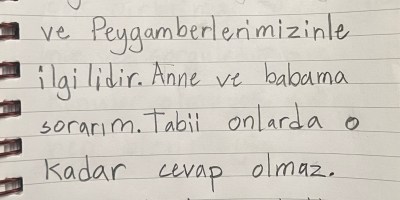 ve Peygamberlerimizinle
ilgilidir. Anne ve babama
sorarım. Tabii onlarda o
kadar cevap olmaz.